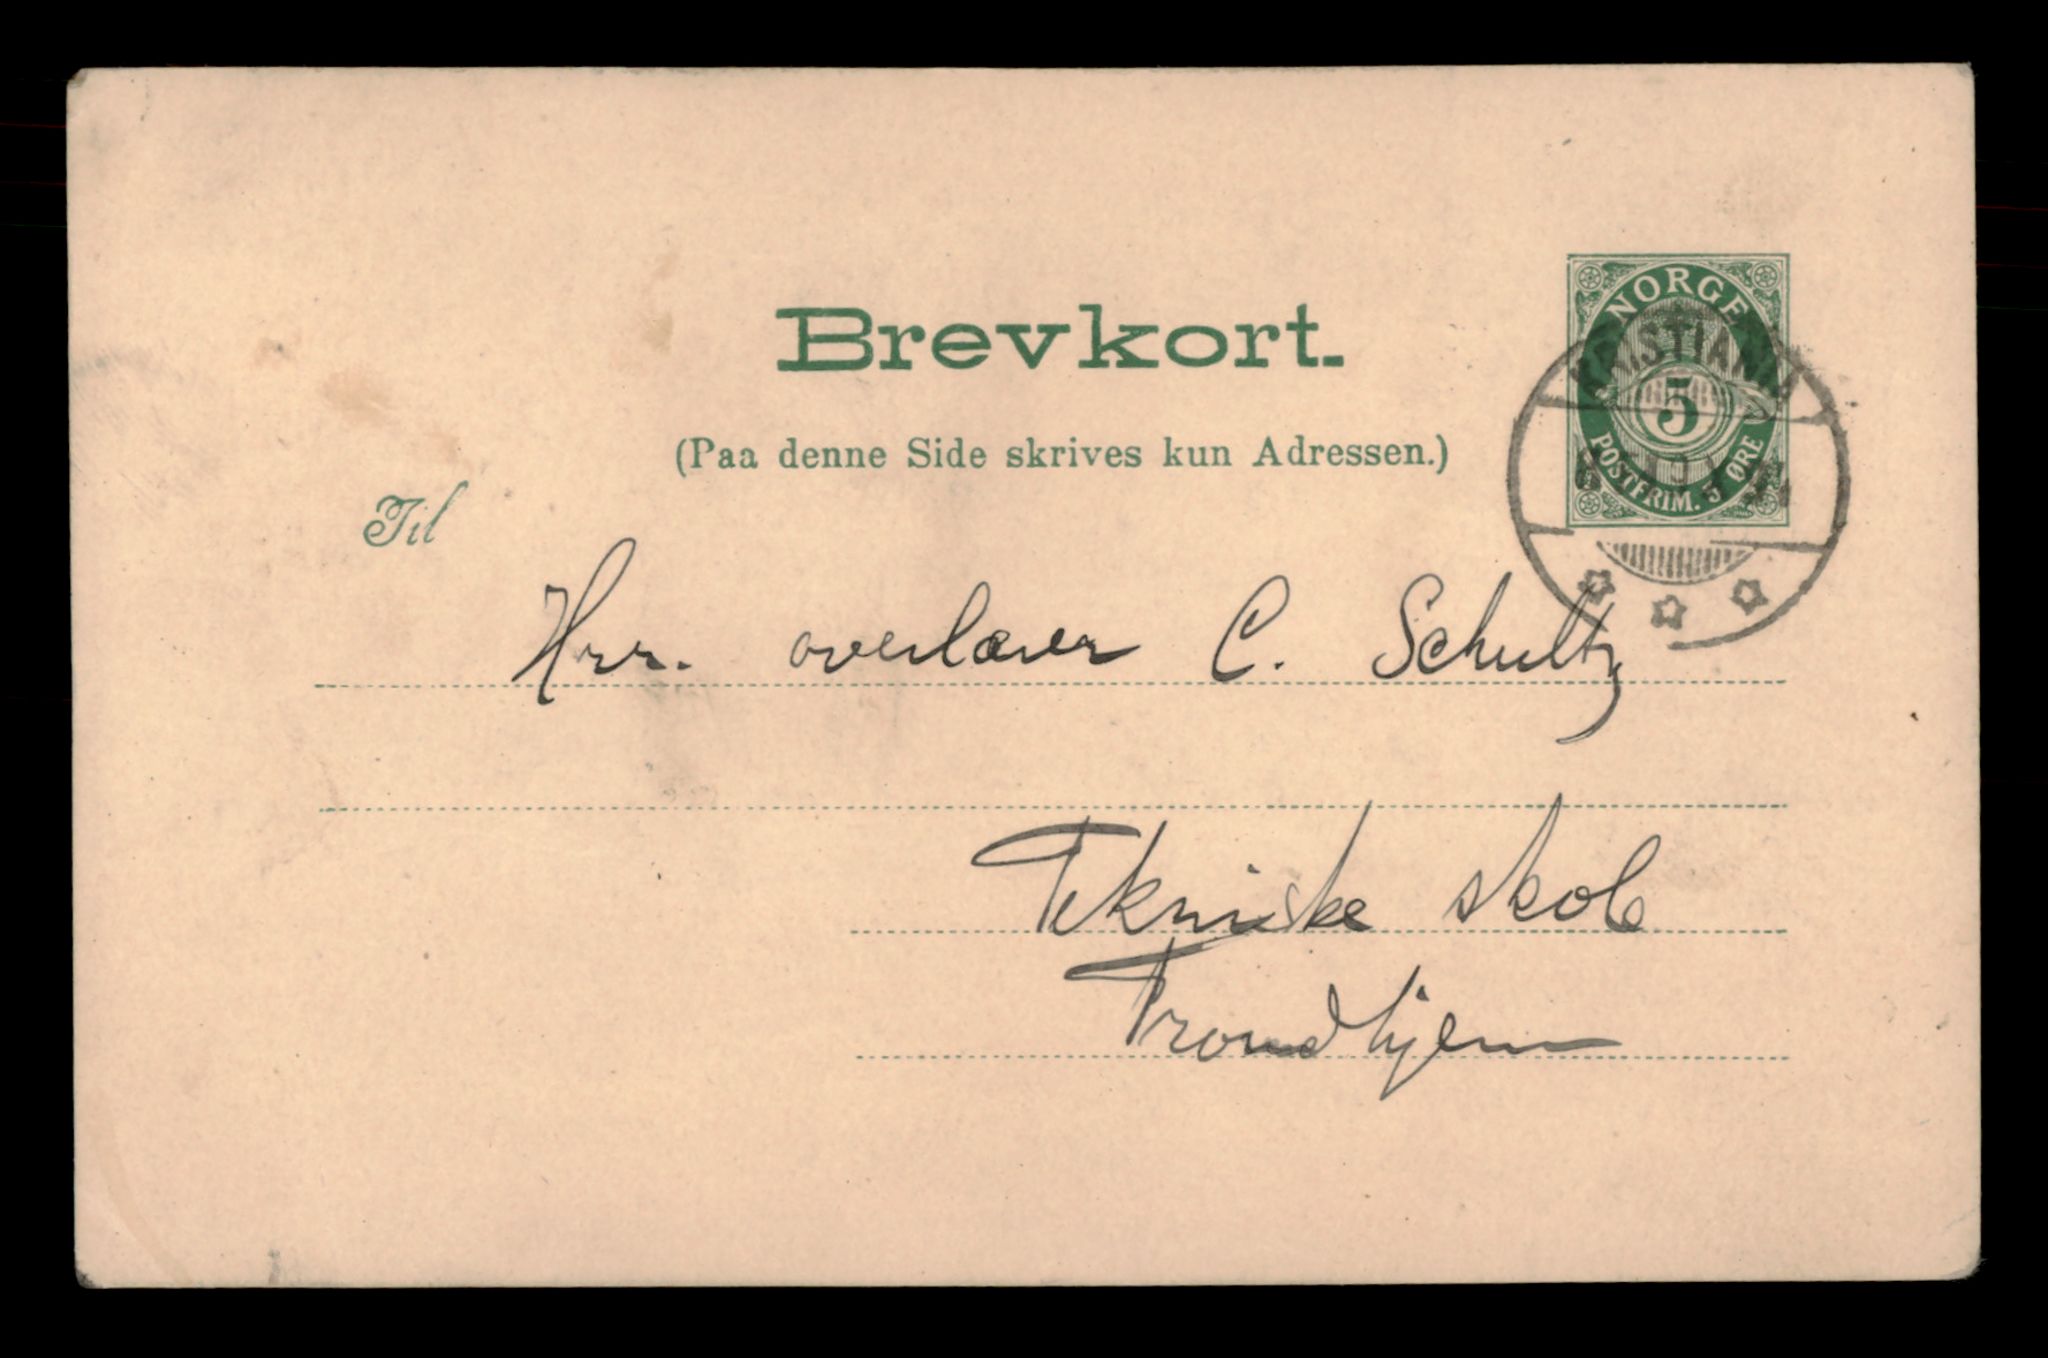 Brevkort.
NORGE
5
POSTFRIM. 5 ØRE
KRISTIANIA
(Paa denne Side skrives kun Adressen.)
Til
Hrr. overlærer C. Schultz
Tekniske skole
Trondhjem